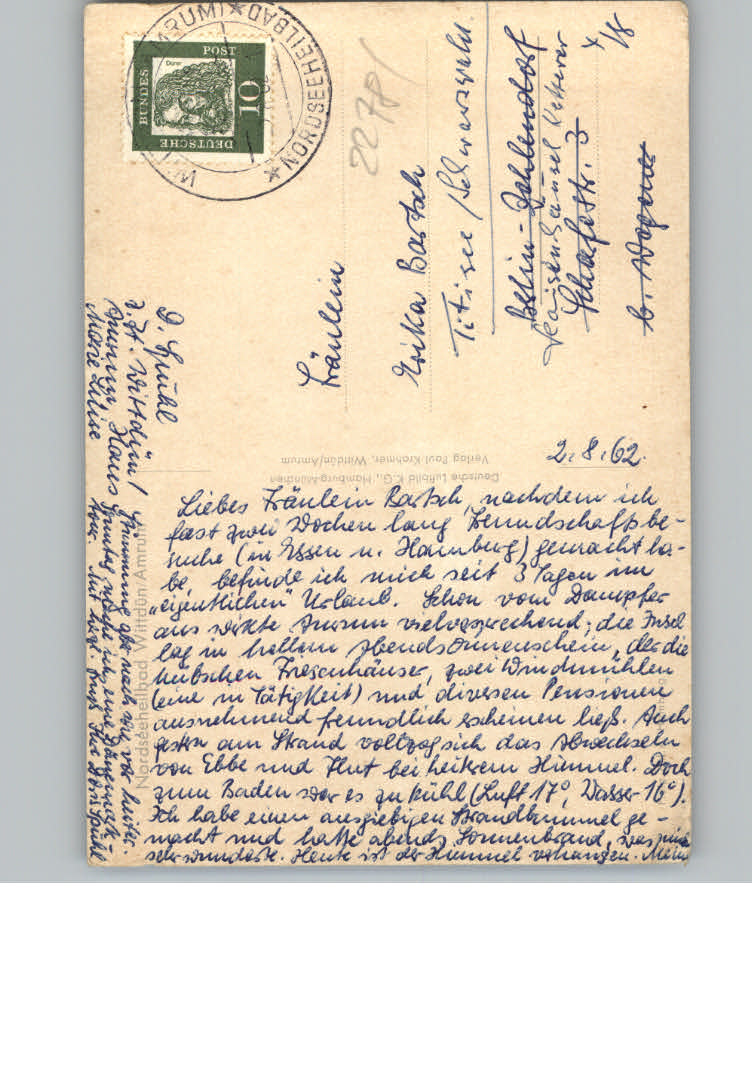 DEUTSCHE
BUNDES
POST
10
Dürer
NORDSEEHEILBAD
2278/
Fräulein
Erika Bartsch
Titisee/Schwarzwald.
Berlin-Zehlendorf
Schafestr. 3
b. Wagener
D. Grühl
z. Zt. Wittdün/
Amrum, Haus
Marie Luise
Deutsche Luftbild K.G., Hamburg-München
Verlag Paul Krahmer, Wittdün/Amrum
Nordseeheilbad Wittdün/Amrum
2.8.62.
Liebes Fräulein Bartsch, nachdem ich
fast zwei Wochen lang Freundschaftsbe-
suche (in Essen u. Hamburg) gemacht ha-
be, befinde ich mich seit 3 Tagen im
„eigentlichen" Urlaub. Schon vom Dampfer
aus wirkte Amrum vielversprechend; die Insel
lag in hellem Abendsonnenschein, der die
hübschen Friesenhäuser, zwei Windmühlen
(eine in Tätigkeit) und diversen Pensionen
ausnehmend freundlich erscheinen ließ. Auch
gestern am Strand vollzog sich das Abwechseln
von Ebbe und Flut bei heiterem Himmel. Doch
zum Baden war es zu kühl (Luft 17°, Wasser 16°).
Ich habe einen ausgiebigen Strandbummel ge-
macht und hatte abends Sonnenbrand, was mich
sehr wunderte. Heute ist der Himmel verhangen. Meine
Stimmung aber nach wie vor heiter.
Sonntag mache ich eine
tour. Mit herzl. Gruß Ihre Doris Grühl